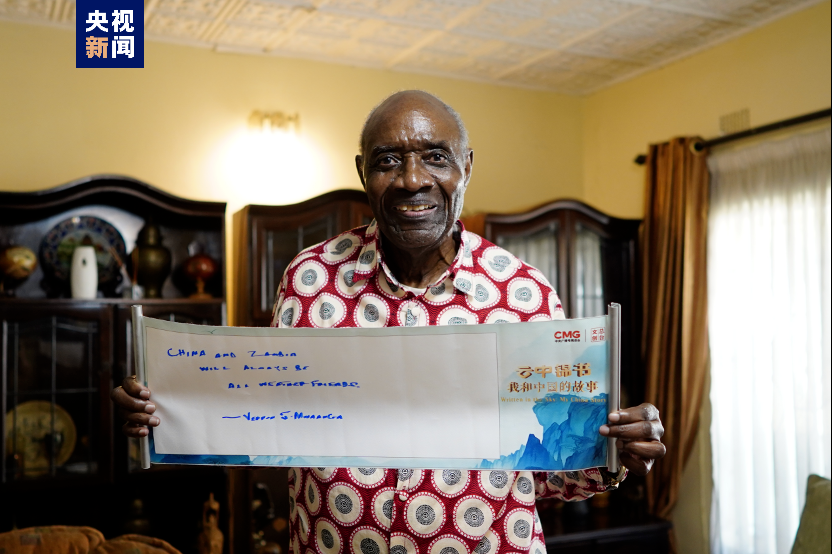 央视
新闻
CHINA AND ZAMBIA
WILL ALWAYS BE
ALL WEATHER FRIENDS.
— VERNON J. MWAANGA
CMG
中央广播电视总台
文艺
创作
我和中国的故事
Written in the Sky: My China Story